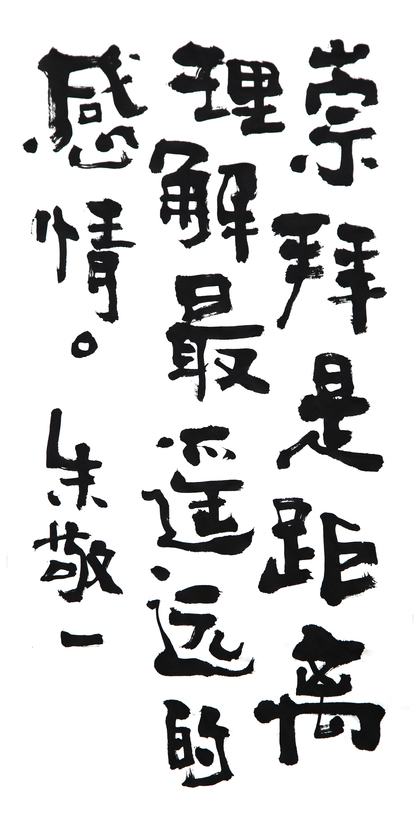 崇拜是距离
理解最遥远的
感情。朱敬一